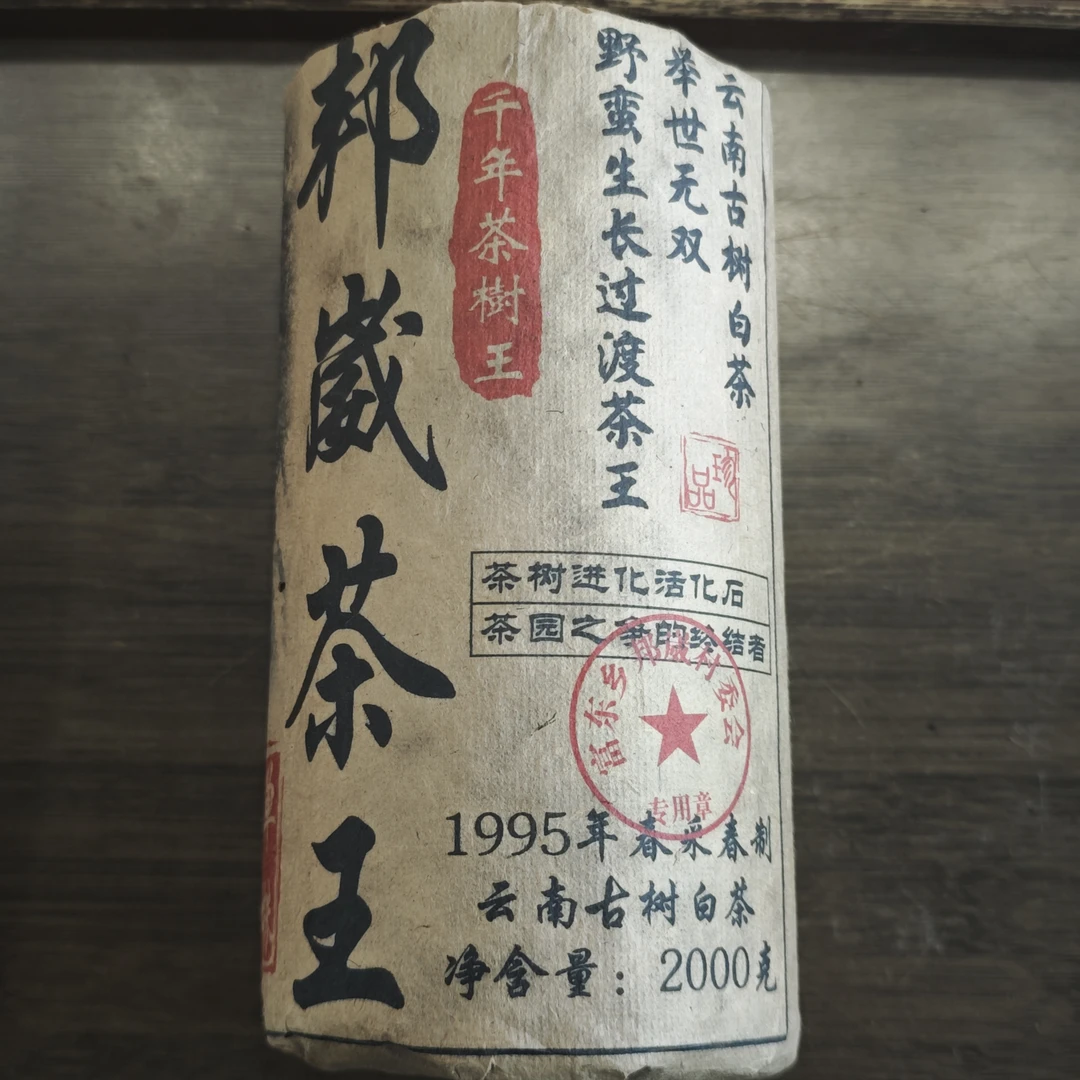 云南古树白茶
举世无双
野蛮生长过渡茶王
珍品
千年茶樹王
邦崴茶王
茶树进化活化石
茶园之争的终结者
富东乡邦崴村委会
专用章
1995年春采春制
云南古树白茶
净含量：2000克